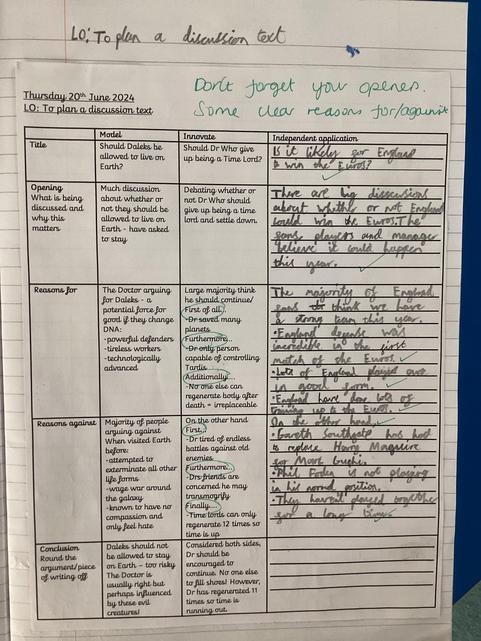 LO: To plan a discussion text
Don't forget your opener.
Some clear reasons for/against
Thursday 20th June 2024
LO: To plan a discussion text
Model
Innovate
Independent application
Title
Should Daleks be
allowed to live on
Earth?
Should Dr Who give
up being a Time Lord?
Is it likely for England
to win the Euros?
Opening
What is being
discussed and why
this matters
Much discussion
about whether or
not they should be
allowed to live on
Earth - have asked
to stay
Debating whether or
not Dr Who should
give up being a time
lord and settle down.
There are big disscussions
about whether or not England
could win the Euros. The
fans players and manager
believe it could happen
this year.
Reasons for
The Doctor arguing
for Daleks - a
potential force for
good if they change
DNA:
-powerful defenders
-tireless workers
-technologically
advanced
Large majority think
he should continue/
First of all..
-Dr saved many
planets
Furthermore...
-Dr only person
capable of controlling
Tardis
Additionally...
-No one else can
regenerate body after
death = irreplaceable
The majority of England
fans think we have
a strong team this year.
•England defense was
incredible in the first
match of the Euros.
•Lots of England players are
in good form.
•England have done lots of
training up to the Euros.
Reasons against
Majority of people
arguing against
When visited Earth
before:
-attempted to
exterminate all other
life forms
-wage war around
the galaxy
-known to have no
compassion and
only feel hate
On the other hand
First..
-Dr tired of endless
battles against old
enemies
Furthermore..
-Drs friends are
concerned he may
transmogrify
Finally...
-Time lords can only
regenerate 12 times so
time is up
On the other hand,
•Gareth Southgate has had
to replace Harry Maguire
for Mark Guehi.
•Phil Foden is not playing
in his normal position.
•They haven't played together
for a long time.
Conclusion
Round the
argument/piece
of writing off
Daleks should not
be allowed to stay
on Earth – too risky
The Doctor is
usually right but
perhaps influenced
by these evil
creatures!
Considered both sides,
Dr should be
encouraged to
continue. No one else
to fill shoes! However,
Dr has regenerated 11
times so time is
running out.